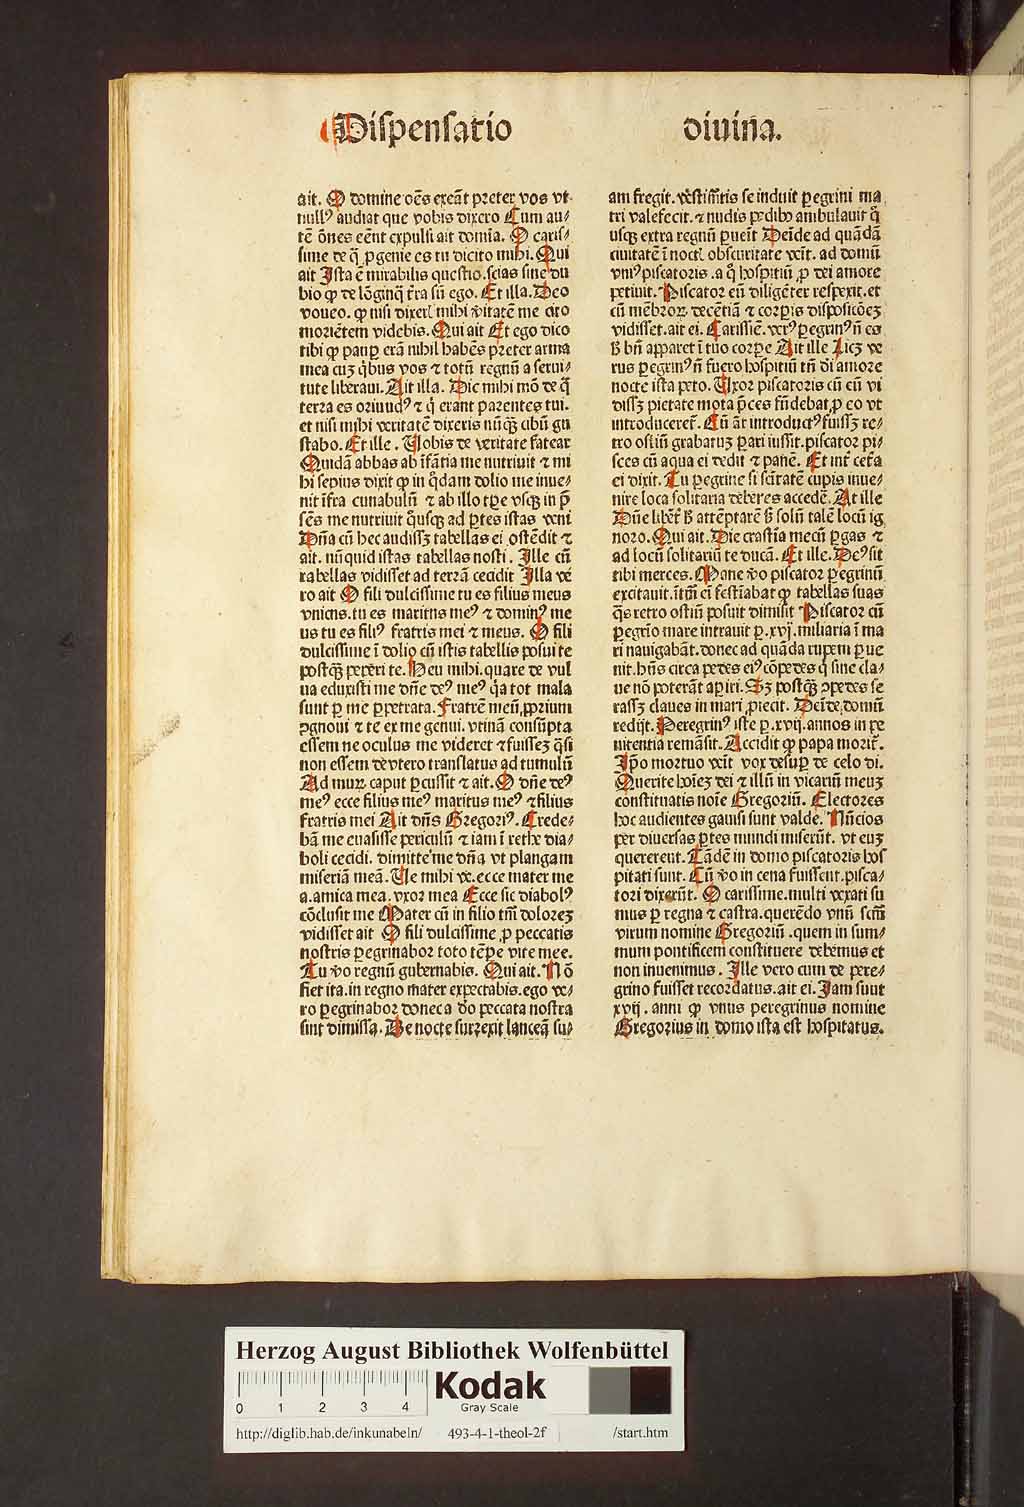 Dispensatio diuina.
ait. O domine oēs exeāt preter vos vt
null⁹ audiat que vobis dixero Cum au⸗
tē ōnes eēnt expulsi ait domīa. O caris⸗
sime de q̄ ꝓgenie es tu dicito mihi. Qui
ait Ista ē mirabilis questio. scias sine du
bio ꝙ de lōginq̄ t̄ra sū ego. Et illa. Deo
voueo. ꝙ nisi dixerī mihi v̄itatē me cito
moriētem videbis. Qui ait Et ego dico
tibi ꝙ paup̄ erā nihil habēs preter arma
mea cuꝫ q̇bus vos ⁊ totū regnū a serui⸗
tute liberaui. Ait illa. Dic mihi mō de q̄
terra es oriūd⁹ ⁊ q̇ erant parentes tui.
et nisi mihi veritatē dixeris nūq̄ꝫ cibū gu
stabo. Et ille. Vobis de veritate fatear
Quidā abbas ab īfātia me nutriuit ⁊ mi
hi sepius dixit ꝙ in q̇dam dolio me inue⸗
nit īfra cunabulū ⁊ ab illo tꝑe vsqꝫ in p̄
sēs me nutriuit q̇usqꝫ ad ꝑtes istas veni
Dn̄a cū hec audissꝫ tabellas ei ostēdit ⁊
ait. nūquid istas tabellas nosti. Ille cū
tabellas vidisset ad terrā cecidit Illa ve
ro ait O fili dulcissime tu es filius meus
vnicus. tu es maritus me⁹ ⁊ domin⁹ me
us tu es fili⁹ fratris mei ⁊ meus. O fili
dulcissime ī dolio cū istis tabellis posui te
postq̄ꝫ peperi te. Heu mihi. quare de vul
ua eduxisti me dn̄e de⁹ me⁹ q̇a tot mala
sunt ꝑ me ꝑpetrata. Fratrē meū ꝓprium
ꝯgnoui ⁊ te ex me genui. vtinā consūpta
essem ne oculus me videret ⁊ fuisseꝫ q̄si
non essem de vtero translatus ad tumulū
Ad murꝝ caput ꝑcussit ⁊ ait. O dn̄e de⁹
me⁹ ecce filius me⁹ maritus me⁹ ⁊ filius
fratris mei Ait dn̄s Gregori⁹. Crede⸗
bā me euasisse periculū ⁊ iam ī rethe dia⸗
boli cecidi. dimitte me dn̄a vt plangam
miseriā meā. Ve mihi ve. ecce mater me
a. amica mea. vxor mea Ecce sic diabol⁹
cōclusit me Mater cū in filio tm̄ doloreꝫ
vidisset ait O fili dulcissime ꝓ peccatis
nostris ꝑegrinabor toto tēꝑe vite mee.
Tu v̄o regnū gubernabis. Qui ait. Nō
fiet ita. in regno mater expectabis. ego ve⸗
ro ꝑegrinabor donec a deo peccata nostra
sint dimissa. De nocte surrexit lanceā su⸗
am fregit. vestimētis se induit ꝑegrini ma
tri valefecit. ⁊ nudis pedibꝰ ambulauit q̇
usqꝫ extra regnū ꝑueīt Deīde ad quādā
ciuitatē ī nocte obscuritate veīt. ad domū
vni⁹ piscatoris. a q̇ hospitiū ꝓ dei amore
petiuit. Piscator eū diligēter respexit. et
cū mēbroꝝ decētiā ⁊ corpis dispositōeꝫ
vidisset. ait ei. Carissīe. ver⁹ ꝑegrin⁹ n̄ es
hͦ bn̄ apparet ī tuo corꝑe Ait ille licꝫ ve
rus ꝑegrin⁹ n̄ fuero hospitiū tn̄ dei amore
nocte ista peto. Uxor piscatoris cū eū vi
dissꝫ pietate mota p̄ces fūdebat ꝓ eo vt
introduceret. Cū āt introduct⁹ fuissꝫ re⸗
tro ostiū grabatuꝫ ꝑari iussit. piscator pi⸗
sces cū aqua ei dedit ⁊ panē. Et int̄ cet̄a
ei dixit. Tu ꝑegrine si sc̄itatē cupis inue⸗
nire loca solitaria deberes accedē. At ille
Dn̄e libēt̄ hͦ attēptarē sꝫ solū talē locū ig
noro. Qui ait. Die crastīa mecū ꝑgas ⁊
ad locū solitariū te ducā. Et ille. De⁹ sit
tibi merces. Mane v̄o piscator ꝑegrinū
excitauit. ītm̄ ei festīabat ꝙ tabellas suas
q̄s retro ostiū posuit dimisit Piscator cū
ꝑegrīo mare intrauit ꝑ. xvj. miliaria ī ma
ri nauigabāt. donec ad quādā rupem ꝑue
nit. hn̄s circa pedes ei⁹ cōpedes q̄ sine cla⸗
ue nō poterāt aꝑiri. Sꝫ postq̄ꝫ ꝯpedes se
rassꝫ claues in mari ꝓiecit. Deīde domū
redijt. Peregrin⁹ iste ꝑ. xvij. annos in pe
nitentia remāsit. Accidit ꝙ papa morit̄.
Ip̄o mortuo veīt vox desuꝑ de celo dī.
Querite hoīeꝫ dei ⁊ illū in vicariū meuꝫ
constituatis noīe Gregoriū. Electores
hoc audientes gauisi sunt valde. Nūcios
per diuersas ꝑtes mundi miserūt. vt euꝫ
quererent. Tādē in domo piscatoris hos
pitati sunt. Cū v̄o in cena fuissent. pisca⸗
tori dixerūt. O carissime. multi vexati su
mus ꝑ regna ⁊ castra. querēdo vnū scm̄
virum nomine Gregoriū. quem in sum⸗
mum pontificem constituere debemus et
non inuenimus. Ille vero cum de pere⸗
grino fuisset recordatus. ait ei. Iam sunt
xvij. anni ꝙ vnus peregrinus nomine
Gregorius in domo ista est hospitatus.
Herzog August Bibliothek Wolfenbüttel
0 1 2 3 4
Kodak
Gray Scale
http://diglib.hab.de/inkunabeln/ 493-4-1-theol-2f /start.htm